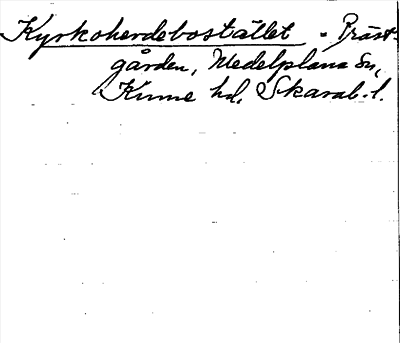 Kyrkoherdebostället - Präst-
gården, Medelplana Sn,
Kinne hd, Skarab. l.